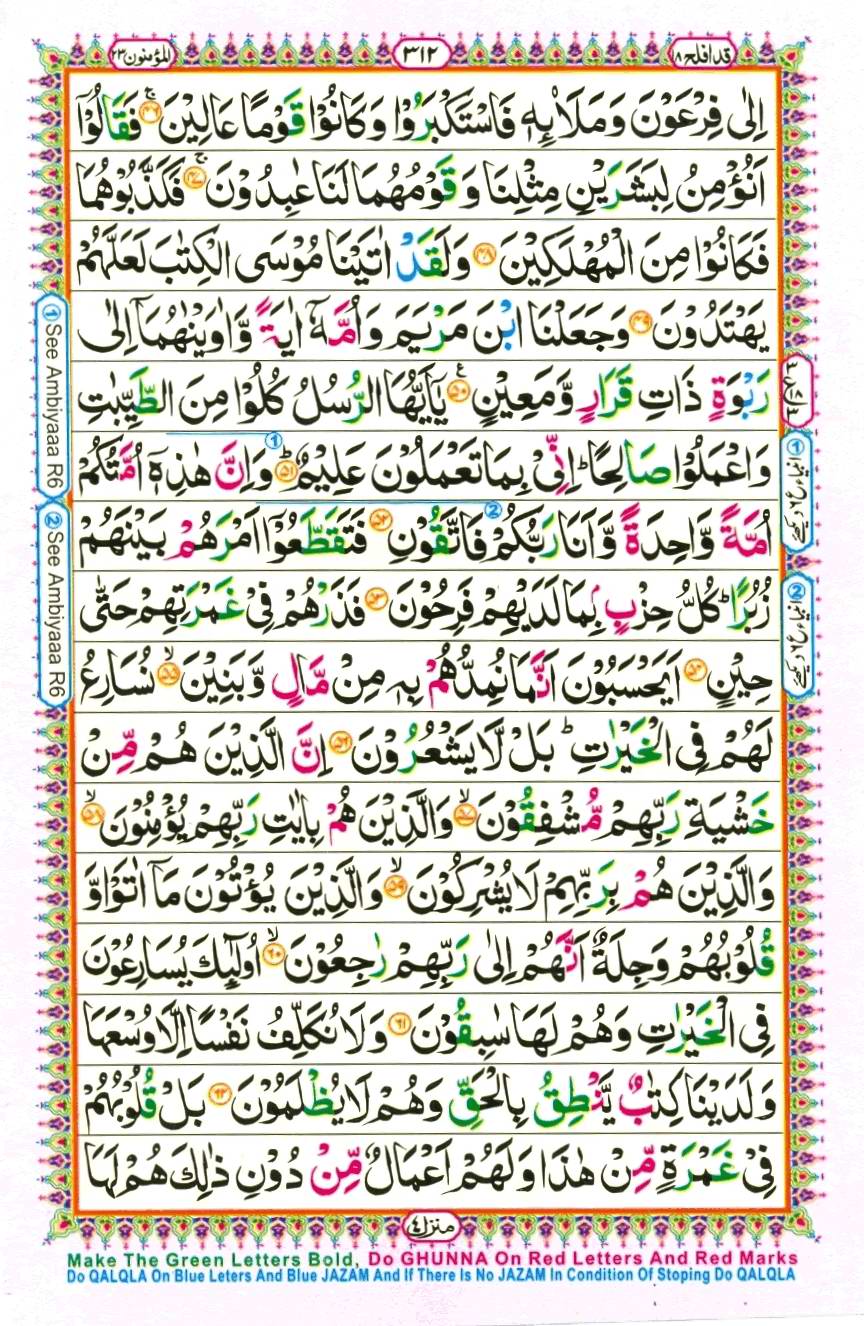 قد افلح ۱۸
۳۱۲
المؤمنون ۲۳
اِلٰى فِرْعَوْنَ وَمَلَا۟ئِهٖ فَاسْتَكْبَرُوْا وَكَانُوْا قَوْمًا عَالِيْنَ ۚ ۴۶ فَقَالُوْۤا
اَنُؤْمِنُ لِبَشَرَيْنِ مِثْلِنَا وَقَوْمُهُمَا لَنَا عٰبِدُوْنَ ۚ ۴۷ فَكَذَّبُوْهُمَا
فَكَانُوْا مِنَ الْمُهْلَكِيْنَ ۴۸ وَلَقَدْ اٰتَيْنَا مُوْسَى الْكِتٰبَ لَعَلَّهُمْ
يَهْتَدُوْنَ ۴۹ وَجَعَلْنَا ابْنَ مَرْيَمَ وَاُمَّهٗۤ اٰيَةً وَّاٰوَيْنٰهُمَاۤ اِلٰى
رَبْوَةٍ ذَاتِ قَرَارٍ وَّمَعِيْنٍ ۵۰ ع يٰۤاَيُّهَا الرُّسُلُ كُلُوْا مِنَ الطَّيِّبٰتِ
وَاعْمَلُوْا صَالِحًا ؕ اِنِّىْ بِمَا تَعْمَلُوْنَ عَلِيْمٌ ؕ ۵۱ وَاِنَّ هٰذِهٖۤ اُمَّتُكُمْ
اُمَّةً وَّاحِدَةً وَّاَنَا رَبُّكُمْ فَاتَّقُوْنِ ۵۲ فَتَقَطَّعُوْۤا اَمْرَهُمْ بَيْنَهُمْ
زُبُرًا ؕ كُلُّ حِزْبٍۭ بِمَا لَدَيْهِمْ فَرِحُوْنَ ۵۳ فَذَرْهُمْ فِىْ غَمْرَتِهِمْ حَتّٰى
حِيْنٍ ۵۴ اَيَحْسَبُوْنَ اَنَّمَا نُمِدُّهُمْ بِهٖ مِنْ مَّالٍ وَّبَنِيْنَ ۙ ۵۵ نُسَارِعُ
لَهُمْ فِى الْخَيْرٰتِ ؕ بَلْ لَّا يَشْعُرُوْنَ ۵۶ اِنَّ الَّذِيْنَ هُمْ مِّنْ
خَشْيَةِ رَبِّهِمْ مُّشْفِقُوْنَ ۙ ۵۷ وَالَّذِيْنَ هُمْ بِاٰيٰتِ رَبِّهِمْ يُؤْمِنُوْنَ ۙ ۵۸
وَالَّذِيْنَ هُمْ بِرَبِّهِمْ لَا يُشْرِكُوْنَ ۙ ۵۹ وَالَّذِيْنَ يُؤْتُوْنَ مَاۤ اٰتَوْا وَّ
قُلُوْبُهُمْ وَجِلَةٌ اَنَّهُمْ اِلٰى رَبِّهِمْ رٰجِعُوْنَ ۙ ۶۰ اُولٰٓئِكَ يُسَارِعُوْنَ
فِى الْخَيْرٰتِ وَهُمْ لَهَا سٰبِقُوْنَ ۶۱ وَلَا نُكَلِّفُ نَفْسًا اِلَّا وُسْعَهَا
وَلَدَيْنَا كِتٰبٌ يَّنْطِقُ بِالْحَقِّ وَهُمْ لَا يُظْلَمُوْنَ ۶۲ بَلْ قُلُوْبُهُمْ
فِىْ غَمْرَةٍ مِّنْ هٰذَا وَلَهُمْ اَعْمَالٌ مِّنْ دُوْنِ ذٰلِكَ هُمْ لَهَا
① See Ambiyaaa R6
② See Ambiyaaa R6
منزل ۴
Make The Green Letters Bold, Do GHUNNA On Red Letters And Red Marks
Do QALQLA On Blue Leters And Blue JAZAM And If There Is No JAZAM In Condition Of Stoping Do QALQLA